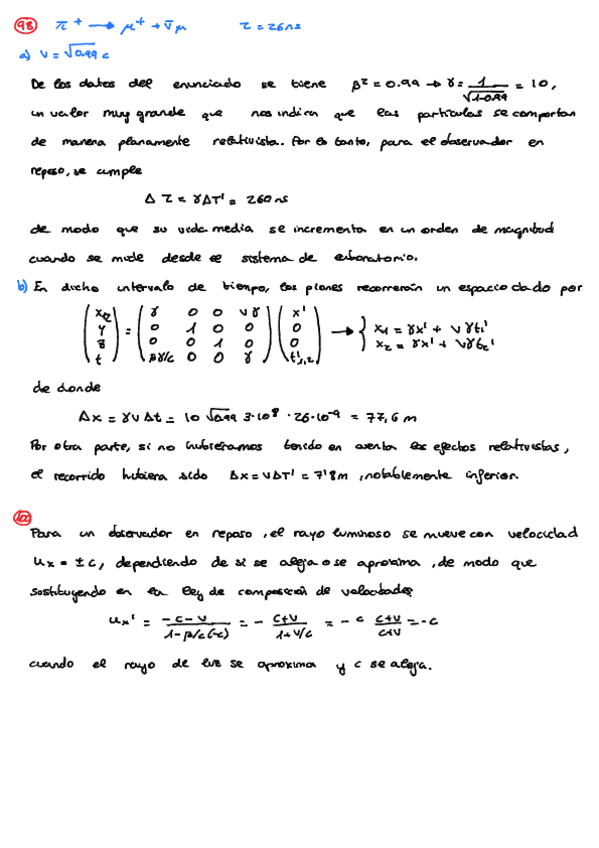 98 π⁺ → μ⁺ + ν̄μ τ = 26 ns
a) v = √0.99 c
De los datos del enunciado se tiene β² = 0.99 → γ = 1/√(1-0.99) = 10,
un valor muy grande que nos indica que las partículas se comportan
de manera planamente relativista. Por lo tanto, para el observador en
reposo, se cumple
Δτ = γΔT' = 260 ns
de modo que su vida media se incrementa en un orden de magnitud
cuando se mide desde el sistema de laboratorio.
b) En dicho intervalo de tiempo, los piones recorrerán un espacio dado por
(x₁,₂ y z t) = (γ 0 0 vγ; 0 1 0 0; 0 0 1 0; βγ/c 0 0 γ) (x' 0 0 t'₁,₂) → { x₁ = γx' + vγt₁' x₂ = γx' + vγt₂'
de donde
Δx = γvΔt = 10 √0.99 3·10⁸ · 26·10⁻⁹ = 77,6 m
Por otra parte, si no hubiéramos tenido en cuenta los efectos relativistas,
el recorrido hubiera sido Δx = vΔT' = 7'8m, notablemente inferior.
Para un observador en reposo, el rayo luminoso se mueve con velocidad
ux = ± c, dependiendo de si se aleja o se aproxima, de modo que
sustituyendo en la ley de composición de velocidades
ux' = (-c - v)/(1 - β/c(-c)) = - (c+v)/(1+v/c) = -c (c+v)/(c+v) = -c
cuando el rayo de luz se aproxima y c se aleja.